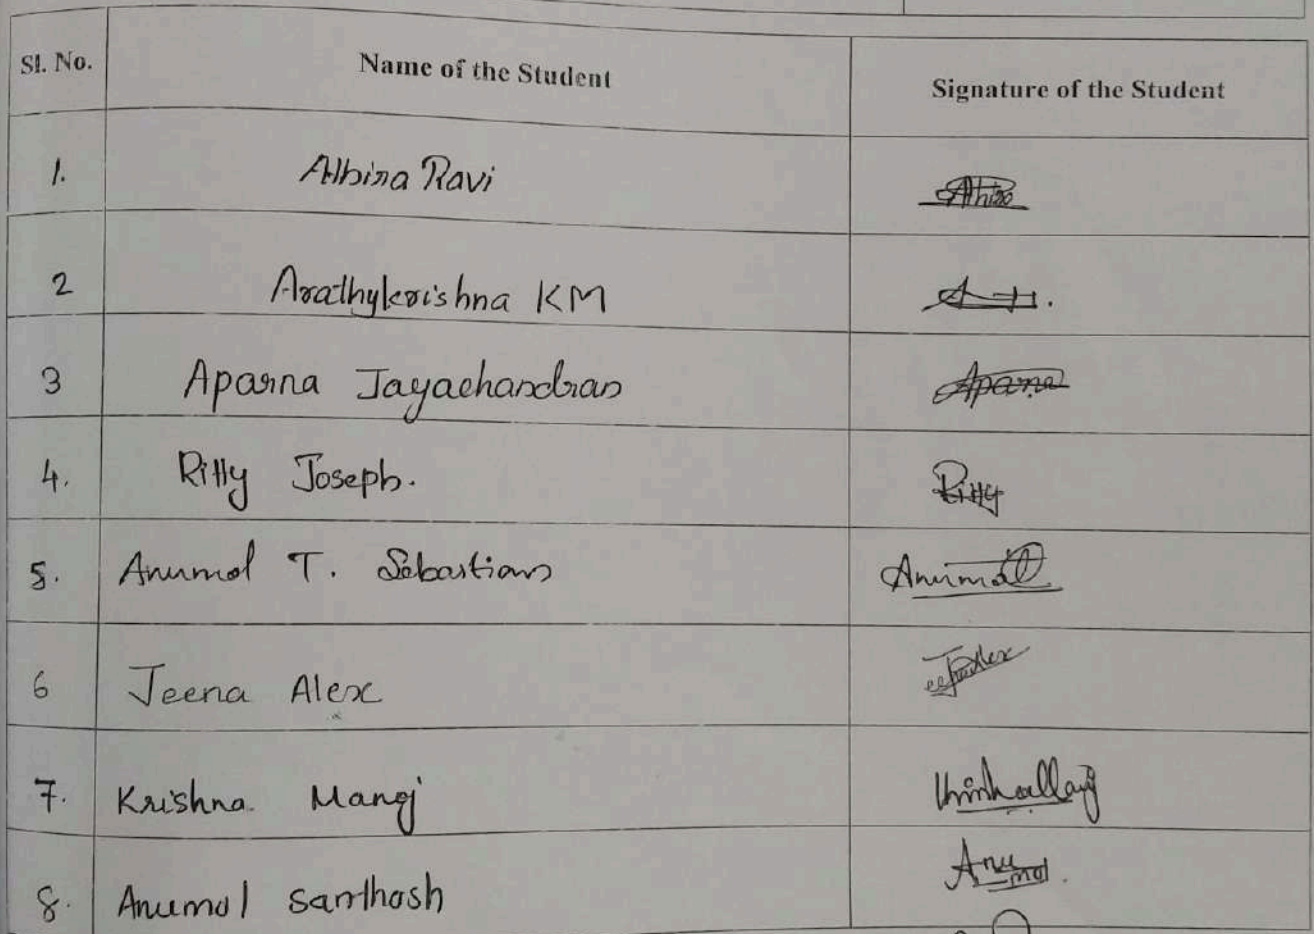 Sl. No. Name of the Student Signature of the Student
1. Albina Ravi
2 Arathykrishna KM
3 Aparna Jayachandran Aparna
4. Ritty Joseph. Ritty
5. Anumol T. Sebastian Anumol
6 Jeena Alex
7. Krishna Manoj
8. Anumol Santhosh Anumol.